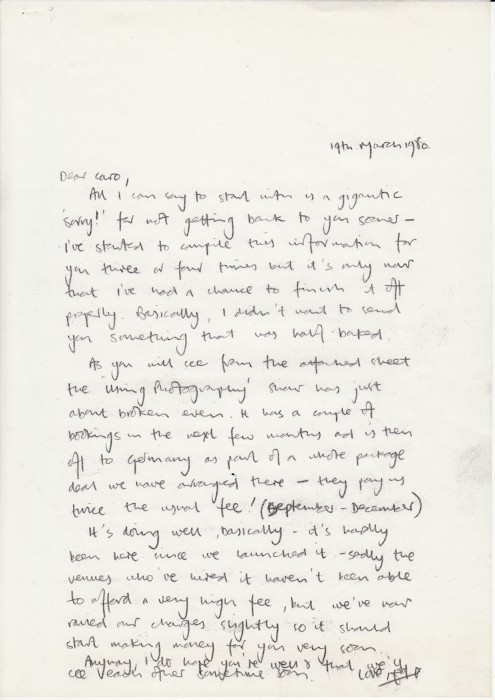 19th March 1980.
Dear Caro,
All I can say to start with is a gigantic
'sorry!' for not getting back to you sooner -
I've started to compile this information for
you three or four times but it's only now
that I've had a chance to finish it off
properly. Basically, I didn't want to send
you something that was half-baked.
As you will see from the attached sheet
the 'Using Photography' show has just
about broken even. It has a couple of
bookings in the next few months and is then
off to Germany as part of a whole package
deal we have arranged there - they pay us
twice the usual fee! (September - December)
It's doing well, basically - it's hardly
been here since we launched it - sadly the
venues who've hired it haven't been able
to afford a very high fee, but we've now
raised our charges slightly so it should
start making money for you very soon.
Anyway, I do hope you're well & that we'll
see each other sometime soon. Love